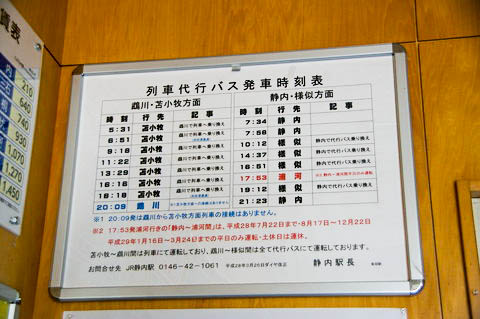 列車代行バス発車時刻表
鵡川・苫小牧方面
静内・様似方面
時刻 行先 記事
時刻 行先 記事
5:31 苫小牧 鵡川で列車へ乗り換え
7:34 静内
6:51 苫小牧 鵡川で列車へ乗り換え
7:58 静内
9:18 苫小牧 鵡川で列車へ乗り換え
10:12 様似 静内で代行バス乗り換え
11:22 苫小牧 鵡川で列車へ乗り換え
14:37 様似 静内で代行バス乗り換え
13:29 苫小牧 鵡川で列車へ乗り換え
16:51 様似 静内で代行バス乗り換え
16:16 苫小牧 鵡川で列車へ乗り換え
17:53 浦河
18:18 苫小牧 鵡川で列車へ乗り換え
19:12 様似 静内で代行バス乗り換え
20:09 鵡川
21:23 静内
※1 20:09発は鵡川から苫小牧方面列車の接続はありません。
※2 17:53発浦河行きの「静内~浦河間」は、平成28年7月22日まで・8月17日~12月22日
平成29年1月16日~3月24日までの平日のみ運転・土休日は運休。
苫小牧~鵡川間は列車にて運転しており、鵡川~様似間は全て代行バスにて運転しております。
お問合せ先 JR静内駅 0146-42-1061 平成28年3月26日ダイヤ改正 静内駅長
賃表
210
640
740
930
1,070
1,270
1,450